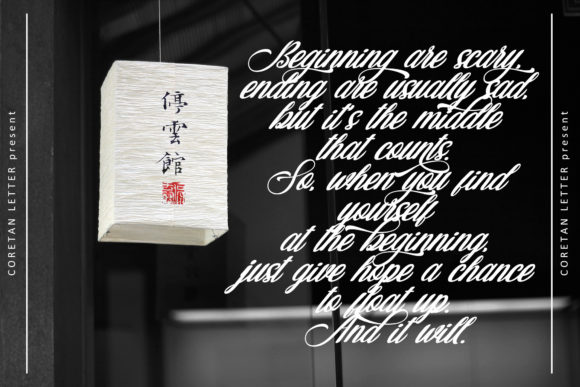 CORETAN LETTER present
停
雲
館
Beginning are scary,
ending are usually sad,
but it's the middle
that counts.
So, when you find
yourself
at the beginning,
just give hope a chance
to float up.
And it will.
CORETAN LETTER present